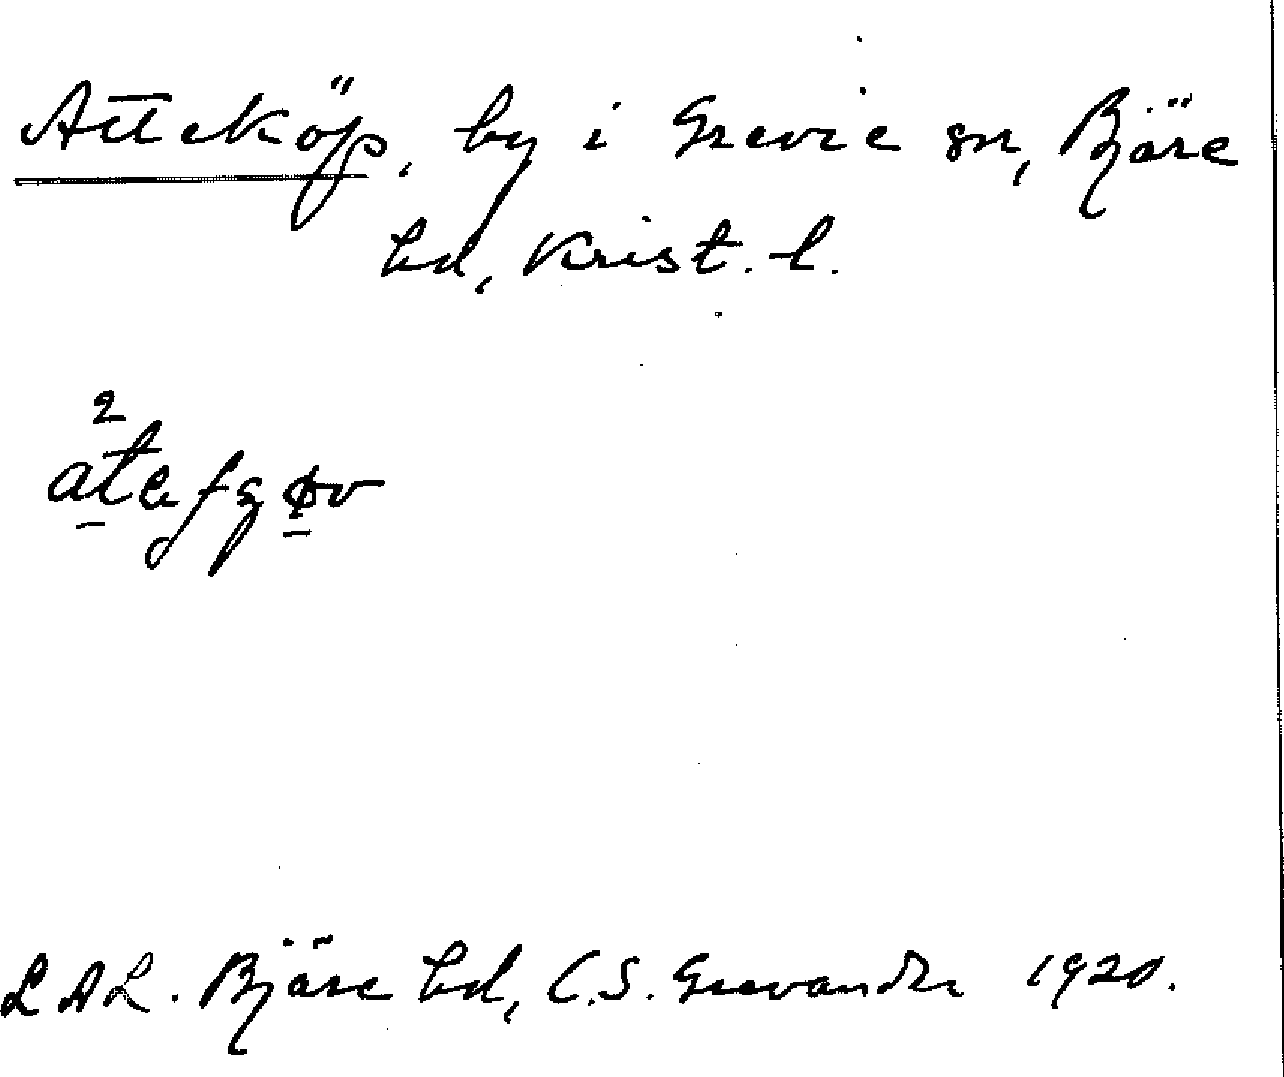 Atteköp, by i Grevie sn, Bjäre
hd, Krist. l.
LAL. Bjäre hd, C.S. Grevander 1920.